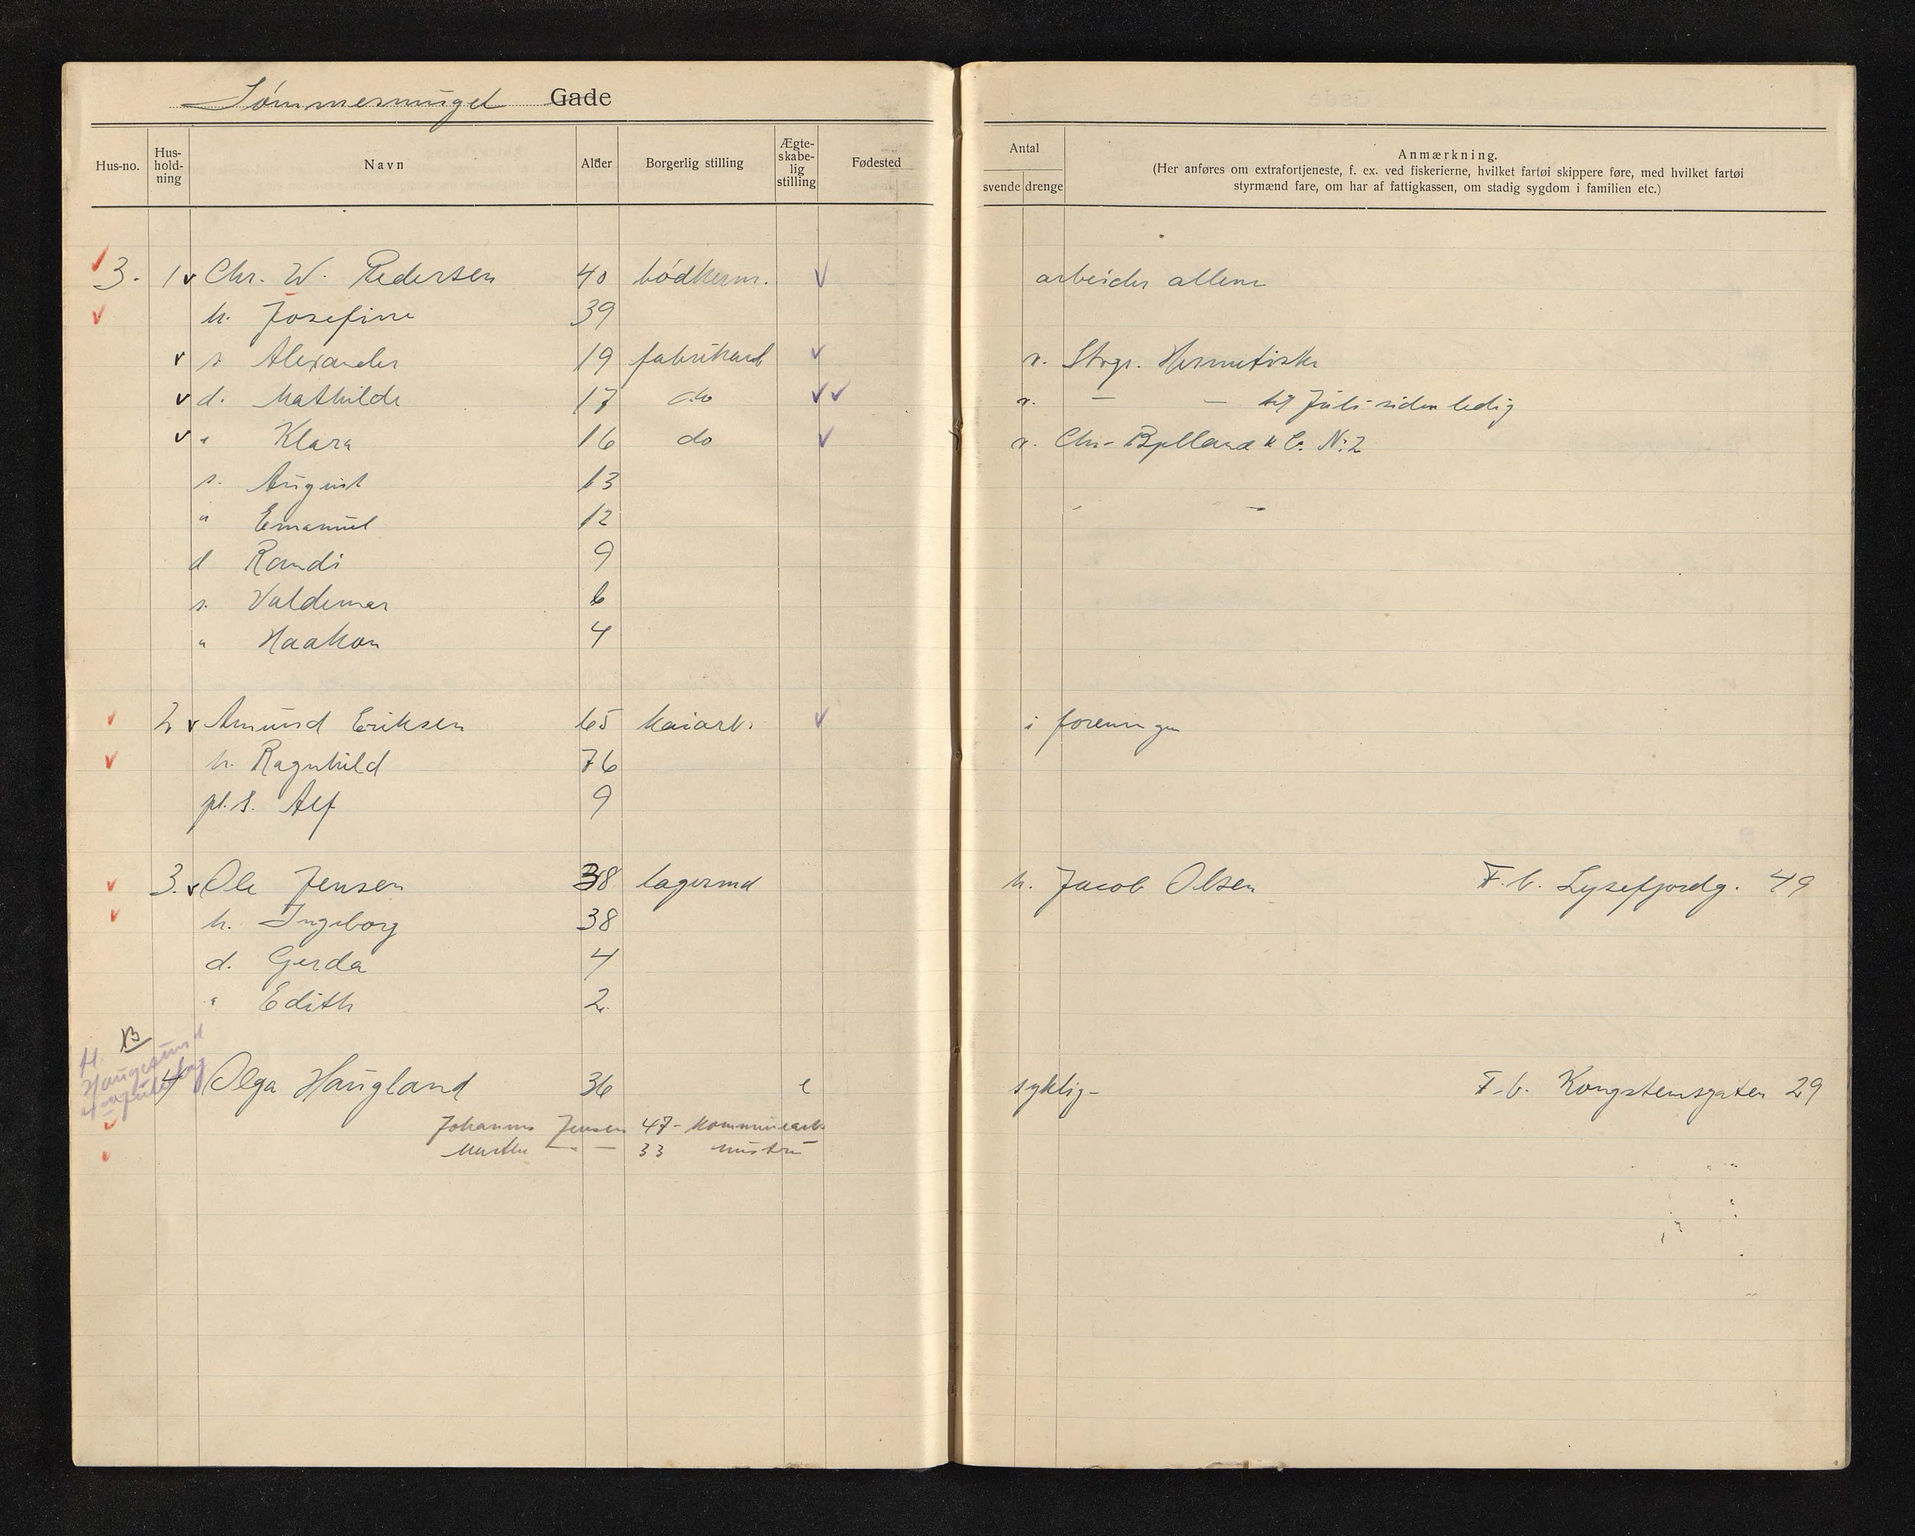 Sømmesmuget Gade
Hus-no. Hus-hold-ning Navn Alder Borgerlig stilling Ægte-skabe-lig stilling Fødested
Antal svende drenge
Anmærkning.
(Her anføres om extrafortjeneste, f. ex. ved fiskerierne, hvilket fartøi skippere føre, med hvilket fartøi
styrmænd fare, om har af fattigkassen, om stadig sygdom i familien etc.)
3. 1 v Chr. W. Pedersen 40 bødkerm. v arbeider allene
h. Josefine 39
v s. Alexander 19 fabrikarb v v. Stvgr. Hermetiske
v d. Mathilde 17 do v v v. — — til Juli siden ledig
v " Klara 16 do v v. Chr. Bjelland & Co. No 2
s. August 13
" Emanuel 12
d Randi 9
s. Valdemar 6
" Haakon 4
2 v Amund Eriksen 65 kaiarb. v i foreningen
h. Ragnhild 76
pl. s. Alf 9
3. v Ole Jensen 38 lagermd h. Jacob Olsen F.b. Lysefjordg. 49
h. Ingeborg 38
d. Gerda 4
" Edith 2
H. B
Haugesund
4 Olga Haugland 36 e syklig - F.b. Kongstensgaten 29
Johannes Jensen 47 - kommunearb.
Marthe — " — 33 hustru